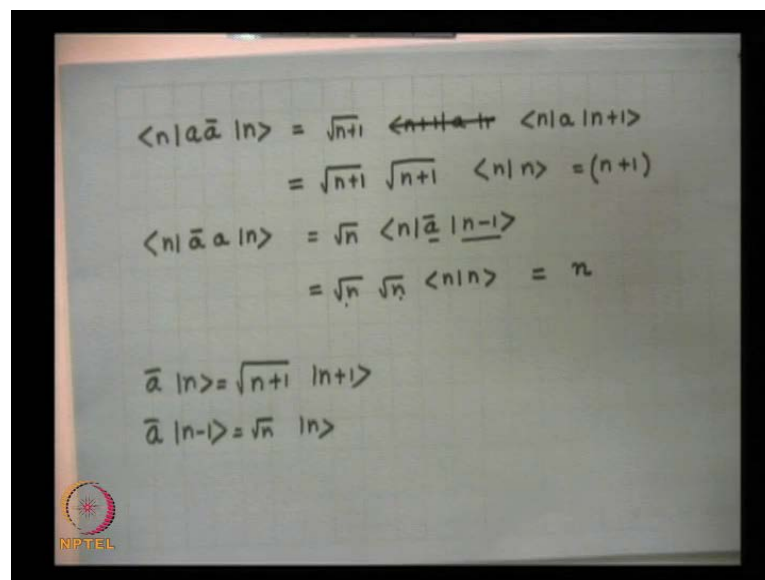 <n|a ā |n> = √n+1 <n+1|a|n <n|a|n+1>
= √n+1 √n+1 <n|n> = (n+1)
<n| ā a |n> = √n <n|ā |n-1>
= √n √n <n|n> = n
ā |n> = √n+1 |n+1>
ā |n-1> = √n |n>
NPTEL